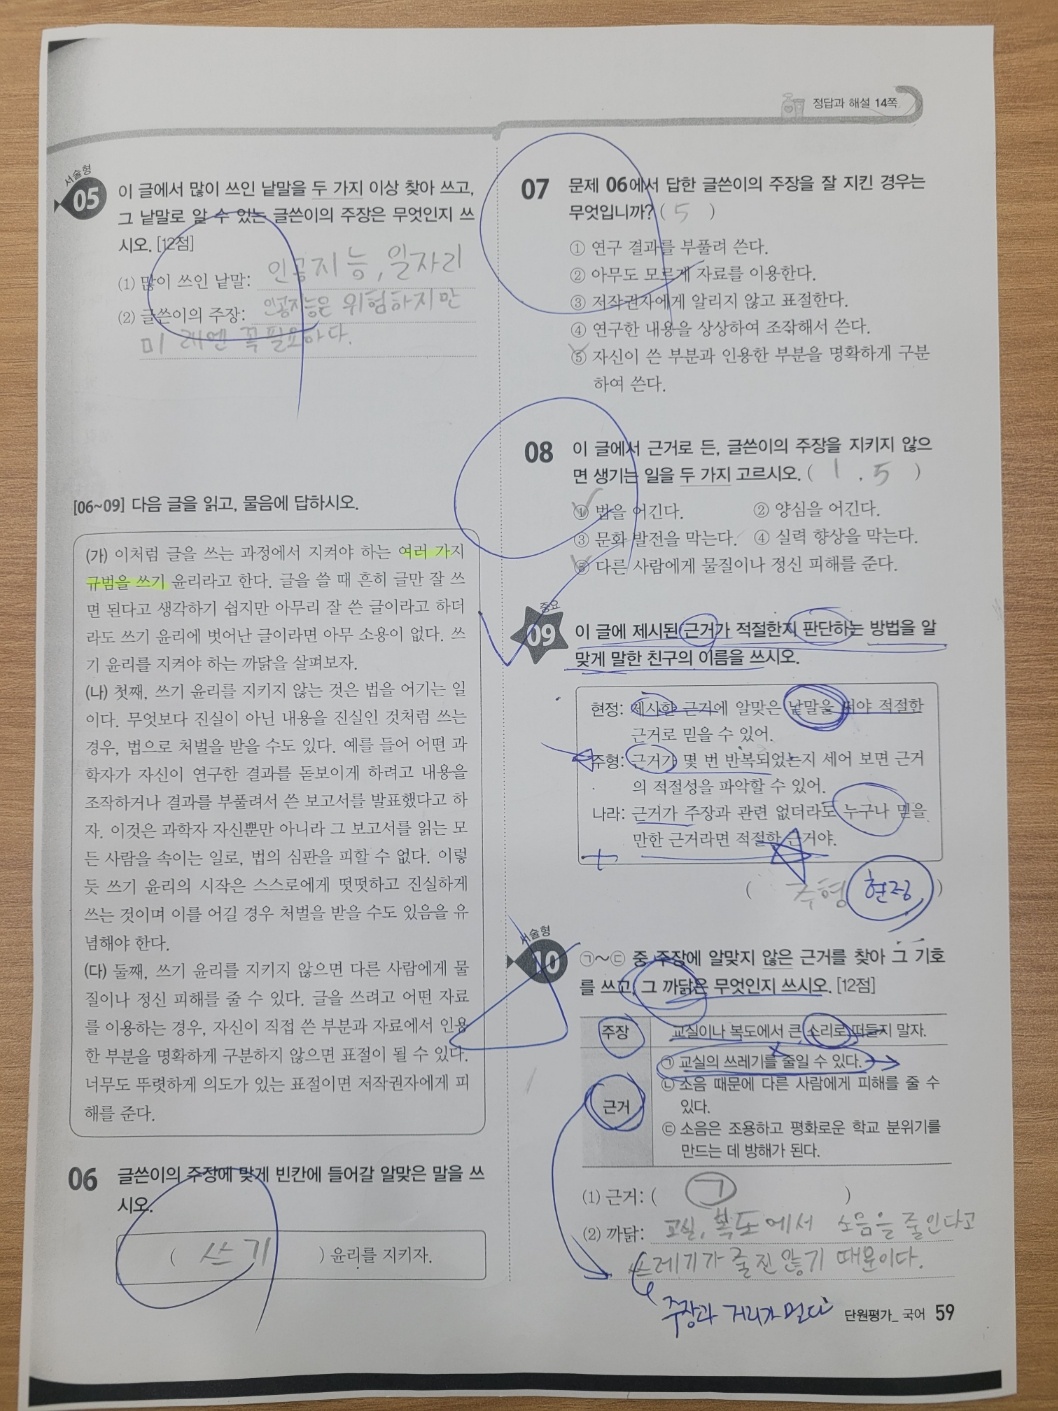 정답과 해설 14쪽
서술형
05 이 글에서 많이 쓰인 낱말을 두 가지 이상 찾아 쓰고,
그 낱말로 알 수 있는 글쓴이의 주장은 무엇인지 쓰
시오. [12점]
(1) 많이 쓰인 낱말: 인공지능, 일자리
(2) 글쓴이의 주장: 인공지능은 위험하지만
미래엔 꼭 필요하다.
[06~09] 다음 글을 읽고, 물음에 답하시오.
(가) 이처럼 글을 쓰는 과정에서 지켜야 하는 여러 가지
규범을 쓰기 윤리라고 한다. 글을 쓸 때 흔히 글만 잘 쓰
면 된다고 생각하기 쉽지만 아무리 잘 쓴 글이라고 하더
라도 쓰기 윤리에 벗어난 글이라면 아무 소용이 없다. 쓰
기 윤리를 지켜야 하는 까닭을 살펴보자.
(나) 첫째, 쓰기 윤리를 지키지 않는 것은 법을 어기는 일
이다. 무엇보다 진실이 아닌 내용을 진실인 것처럼 쓰는
경우, 법으로 처벌을 받을 수도 있다. 예를 들어 어떤 과
학자가 자신이 연구한 결과를 돋보이게 하려고 내용을
조작하거나 결과를 부풀려서 쓴 보고서를 발표했다고 하
자. 이것은 과학자 자신뿐만 아니라 그 보고서를 읽는 모
든 사람을 속이는 일로, 법의 심판을 피할 수 없다. 이렇
듯 쓰기 윤리의 시작은 스스로에게 떳떳하고 진실하게
쓰는 것이며 이를 어길 경우 처벌을 받을 수도 있음을 유
념해야 한다.
(다) 둘째, 쓰기 윤리를 지키지 않으면 다른 사람에게 물
질이나 정신 피해를 줄 수 있다. 글을 쓰려고 어떤 자료
를 이용하는 경우, 자신이 직접 쓴 부분과 자료에서 인용
한 부분을 명확하게 구분하지 않으면 표절이 될 수 있다.
너무도 뚜렷하게 의도가 있는 표절이면 저작권자에게 피
해를 준다.
06 글쓴이의 주장에 맞게 빈칸에 들어갈 알맞은 말을 쓰
시오.
( 쓰기 ) 윤리를 지키자.
07 문제 06에서 답한 글쓴이의 주장을 잘 지킨 경우는
무엇입니까? ( 5 )
① 연구 결과를 부풀려 쓴다.
② 아무도 모르게 자료를 이용한다.
③ 저작권자에게 알리지 않고 표절한다.
④ 연구한 내용을 상상하여 조작해서 쓴다.
⑤ 자신이 쓴 부분과 인용한 부분을 명확하게 구분
하여 쓴다.
08 이 글에서 근거로 든, 글쓴이의 주장을 지키지 않으
면 생기는 일을 두 가지 고르시오. ( 1 . 5 )
① 법을 어긴다. ② 양심을 어긴다.
③ 문화 발전을 막는다. ④ 실력 향상을 막는다.
⑤ 다른 사람에게 물질이나 정신 피해를 준다.
중요
09 이 글에 제시된 근거가 적절한지 판단하는 방법을 알
맞게 말한 친구의 이름을 쓰시오.
현정: 제시한 근거에 알맞은 낱말을 써야 적절한
근거로 믿을 수 있어.
주형: 근거가 몇 번 반복되었는지 세어 보면 근거
의 적절성을 파악할 수 있어.
나라: 근거가 주장과 관련 없더라도 누구나 믿을
만한 근거라면 적절한 근거야.
( 주형 현정 )
서술형
10 ㉠~㉢ 중 주장에 알맞지 않은 근거를 찾아 그 기호
를 쓰고, 그 까닭은 무엇인지 쓰시오. [12점]
주장 교실이나 복도에서 큰 소리로 떠들지 말자.
㉠ 교실의 쓰레기를 줄일 수 있다.
㉡ 소음 때문에 다른 사람에게 피해를 줄 수
근거 있다.
㉢ 소음은 조용하고 평화로운 학교 분위기를
만드는 데 방해가 된다.
(1) 근거: ( ㄱ )
(2) 까닭: 교실, 복도에서 소음을 줄인다고
쓰레기가 줄진 않기 때문이다.
주장과 거리가 멀다
단원평가_ 국어 59